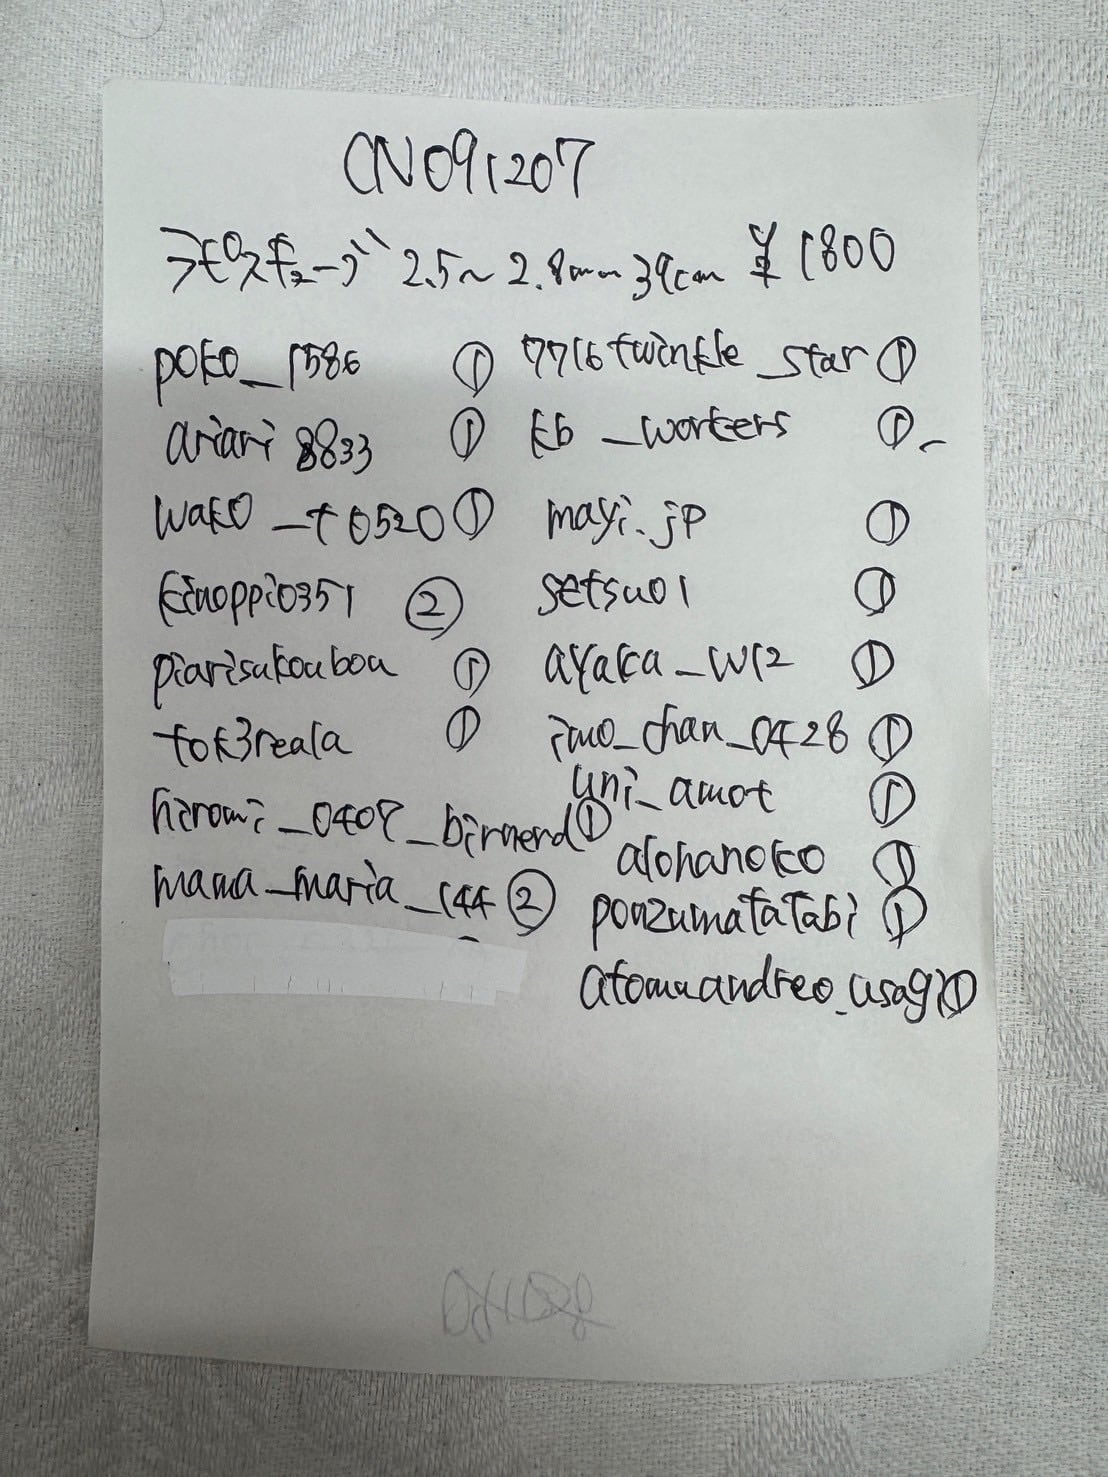 CN091207
ラピスキューブ 2.5~2.8mm 39cm ¥1800
poko_1586 ①
ariari8833 ①
wako_t0520 ①
kinoppi0351 ②
piarisukoubou ①
tok3reala ①
hiromi_0407_birnerd ①
mama_maria_144 ②
7716twinkle_star ①
kb_workers ①
mayi.jp ①
setsu01 ①
ayaka_w12 ①
imo_chan_0428 ①
uni_amot ①
alohanoko ①
ponzumatatabi ①
atomuandreo_usagi ①